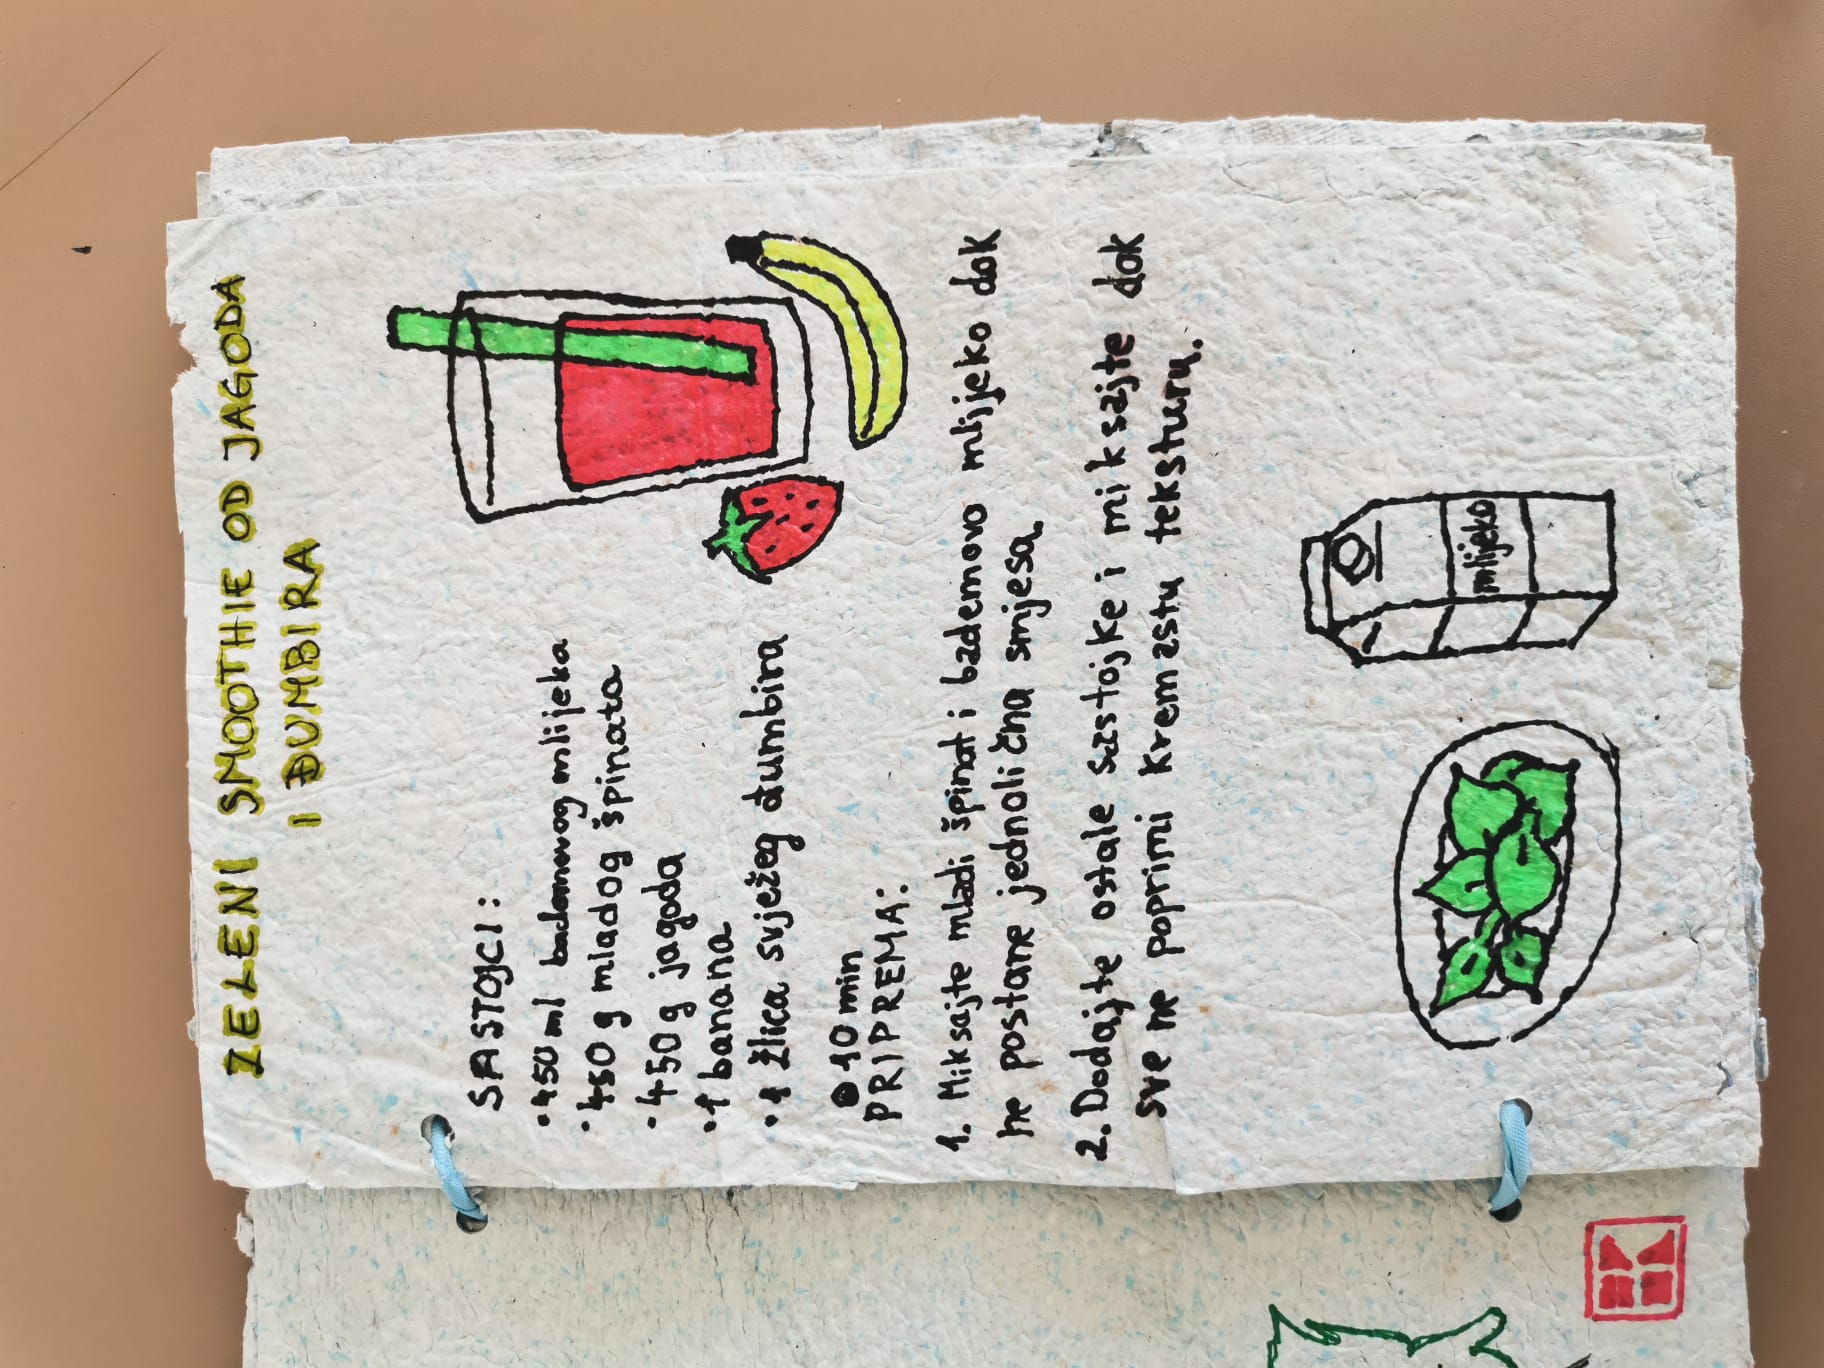 ZELENI SMOOTHIE OD JAGODA
I ĐUMBIRA
SASTOJCI:
• 450 ml bademovog mlijeka
• 450 g mladog špinata
• 450 g jagoda
• 1 banana
• 1 žlica svježeg đumbira
10 min
PRIPREMA:
1. Miksajte mladi špinat i bademovo mlijeko dok
ne postane jednolična smjesa.
2. Dodajte ostale sastojke i miksajte dok
sve ne poprimi kremastu teksturu.
mlijeko